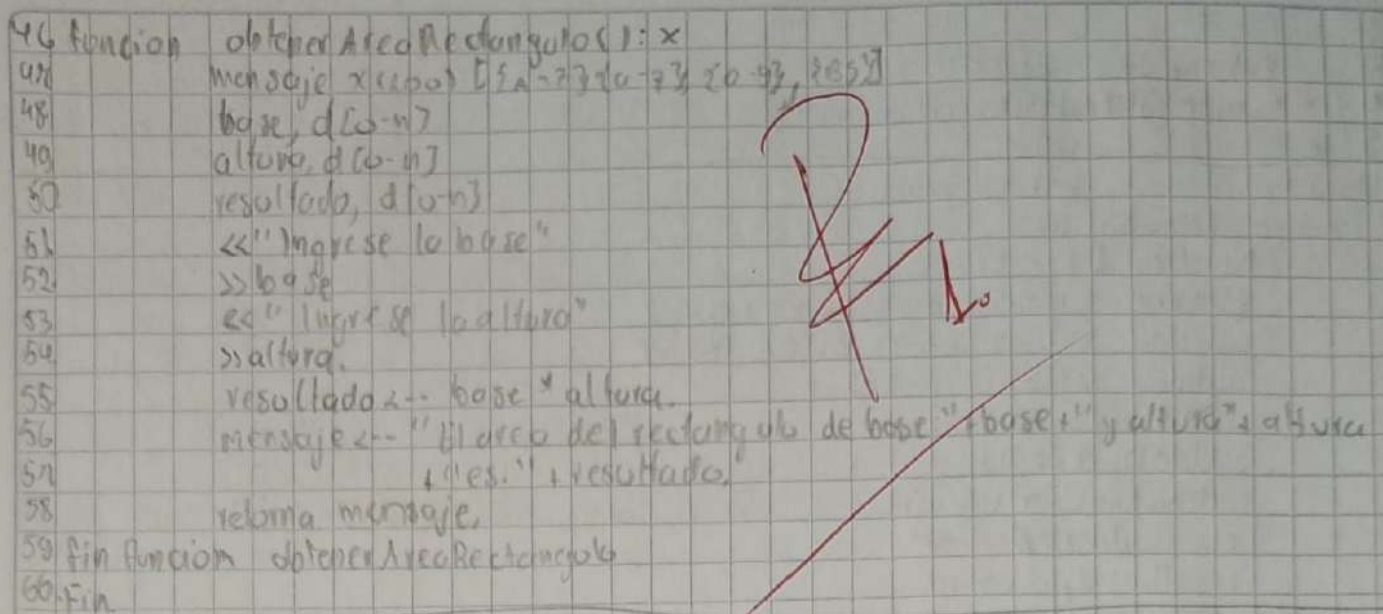 46 funcion obtenerAreaRectangulo(): x
47 mensaje x(200) [{A-Z}{a-z}, {0-9}, {ESP}]
48 base, d[0-n]
49 altura, d[0-n]
50 resultado, d[0-n]
51 <<"Ingrese la base"
52 >>base
53 <<"Ingrese la altura"
54 >>altura.
55 resultado <-- base * altura.
56 mensaje <-- "El area del rectangulo de base"+base+"y altura"+altura
57 +"es."+resultado.
58 retorna mensaje.
59 fin funcion obtenerAreaRectangulo
60. Fin